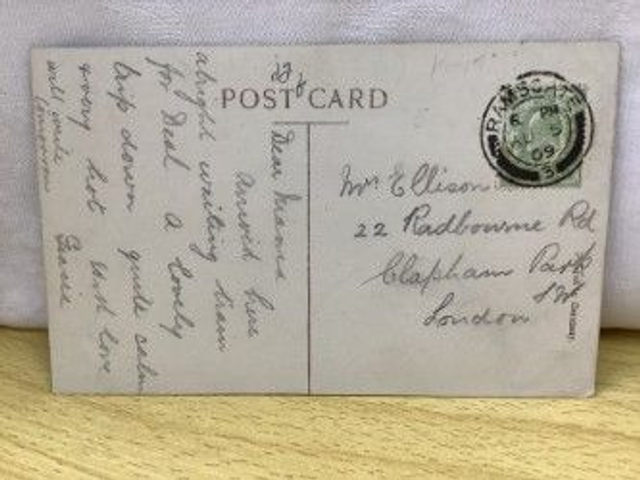 POST CARD
RAMSGATE
6 PM
09
3
Dear Mama
Arrived here
alright waiting train
for Deal A lovely
trip down quite calm
& very hot best love
Essie
will write
tomorrow
Mrs Ellison
22 Radbourne Rd
Clapham Park
SW
London
Germany.